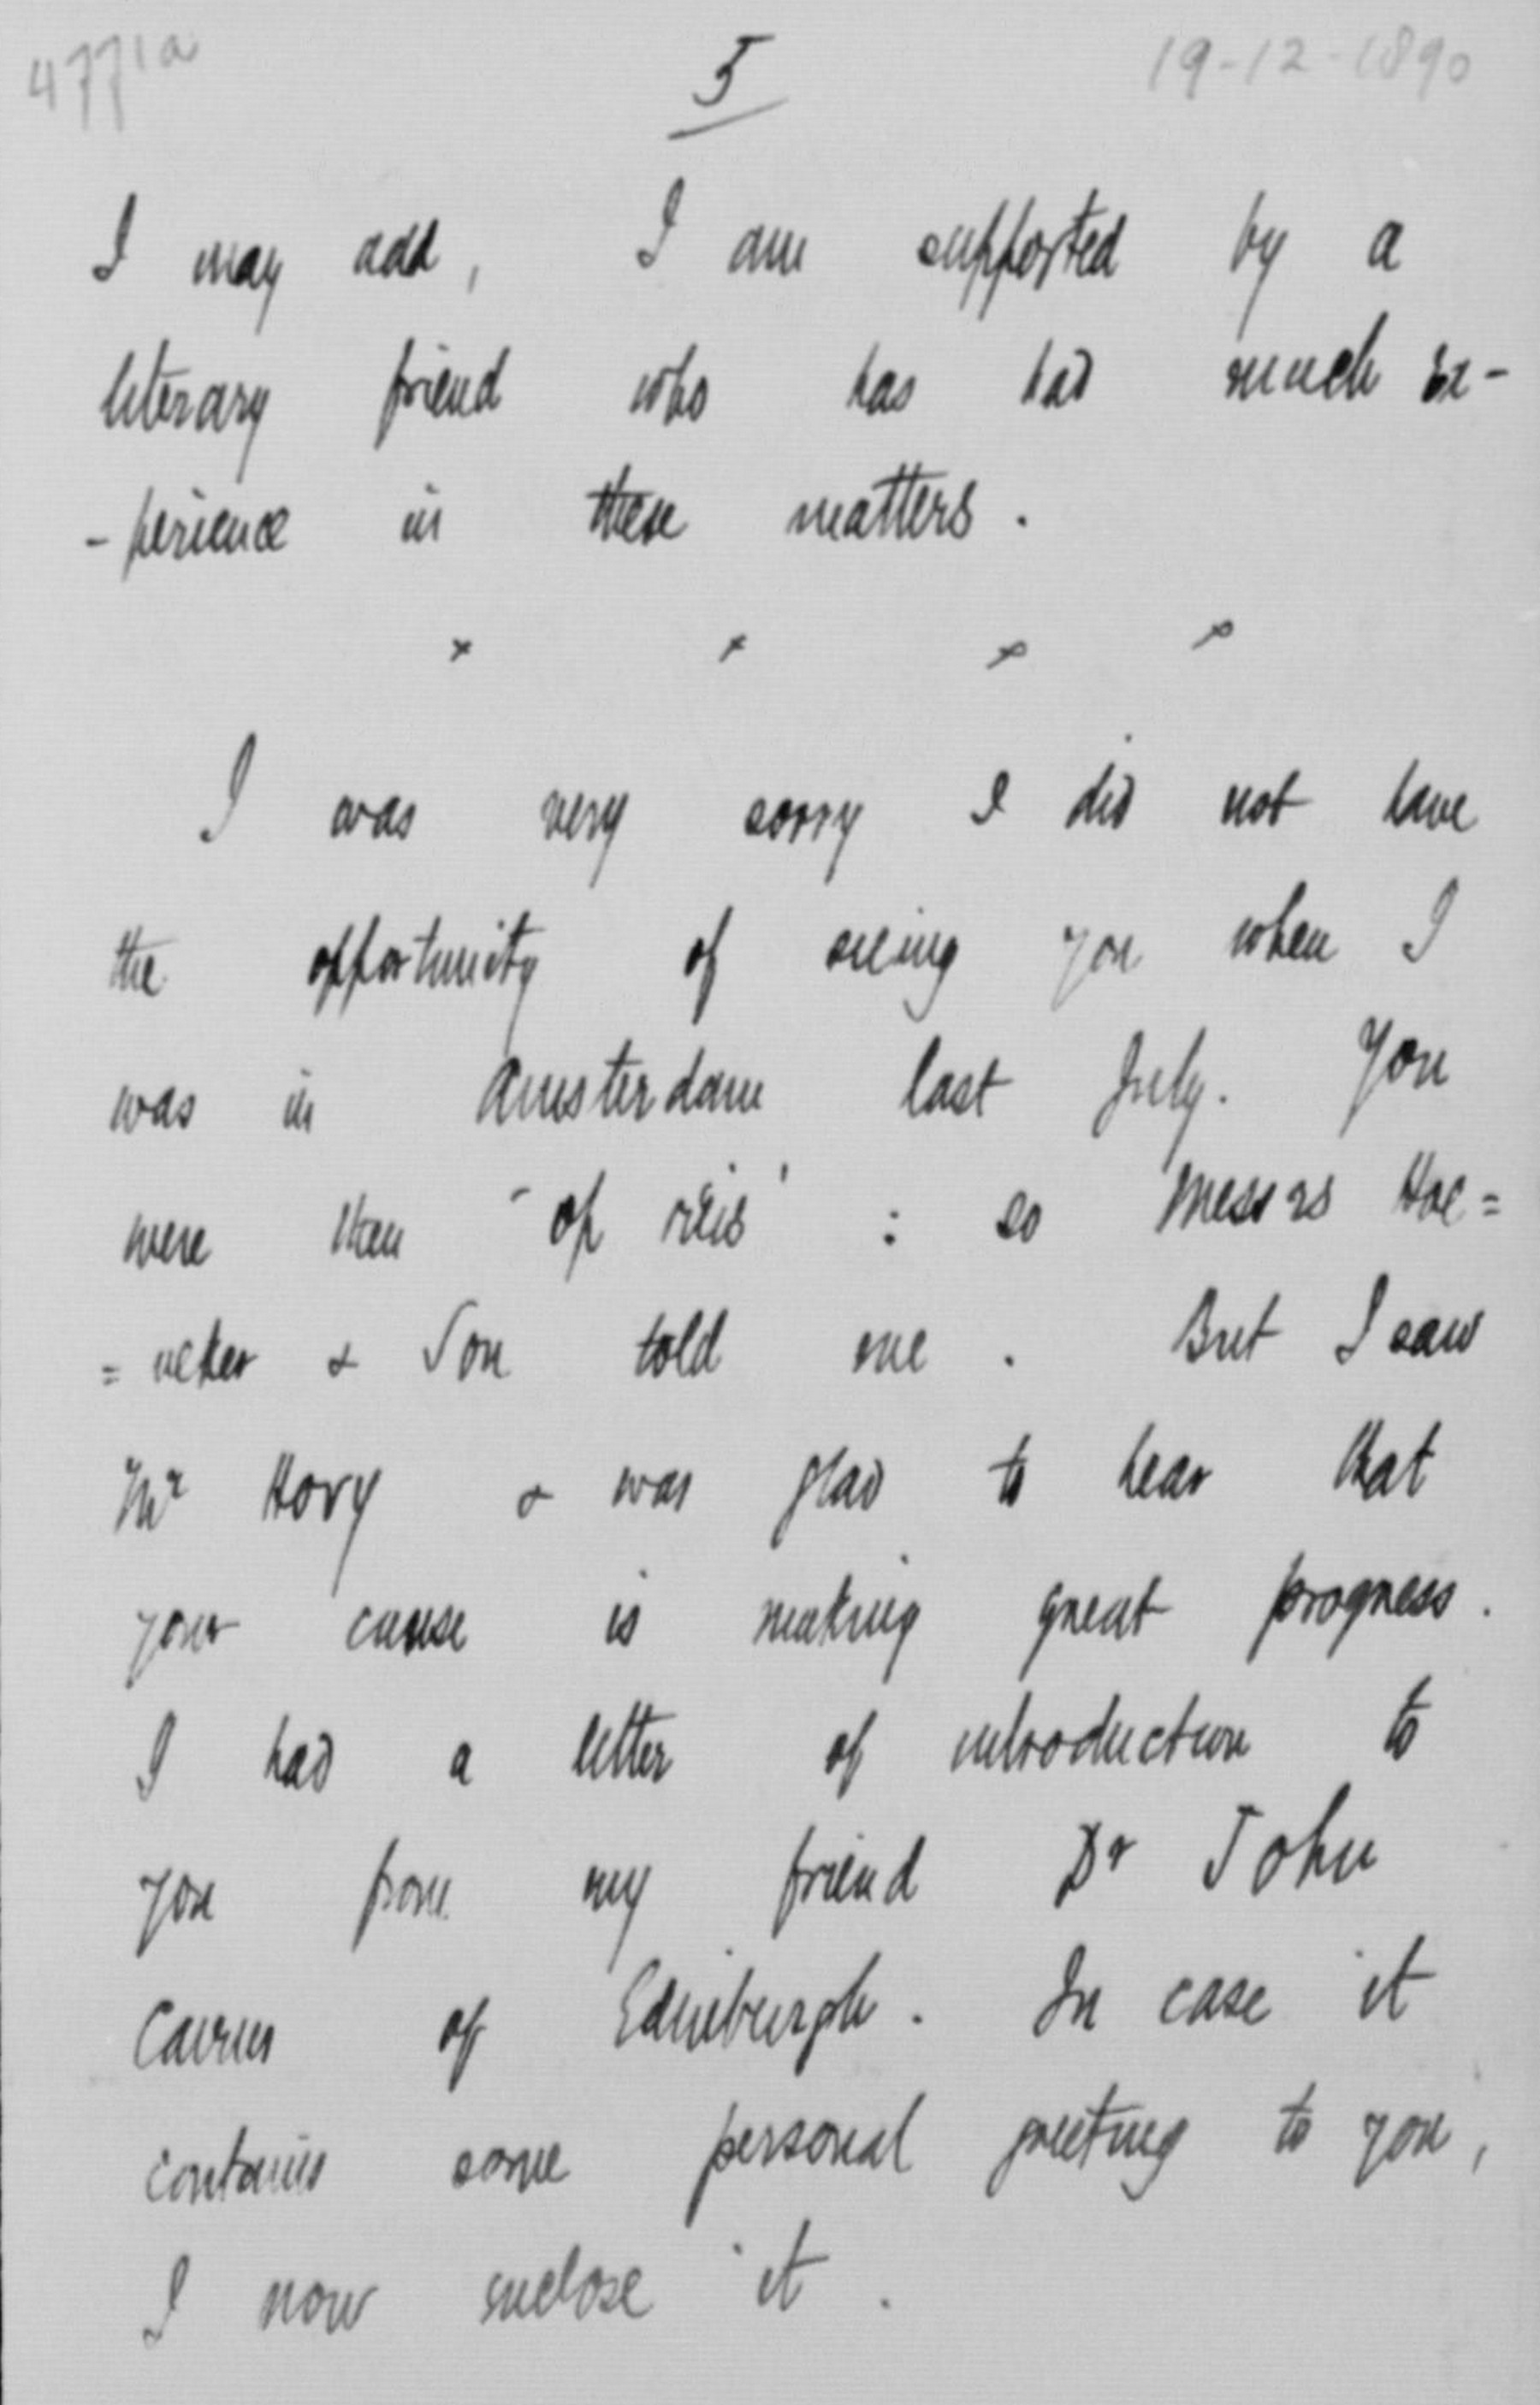 4771a 5 19-12-1890
I may add, I am supported by a
literary friend who has had much ex-
-perience in these matters.
x x x x
I was very sorry I did not have
the opportunity of seeing you when I
was in Amsterdam last July. You
were then "op reis' : so Messrs Hoe=
=veker & Son told me. But I saw
Mr Hovy & was glad to hear that
your cause is making great progress.
I had a letter of introduction to
you from my friend Dr John
Cairns of Edinburgh. In case it
contains some personal greeting to you,
I now enclose it.